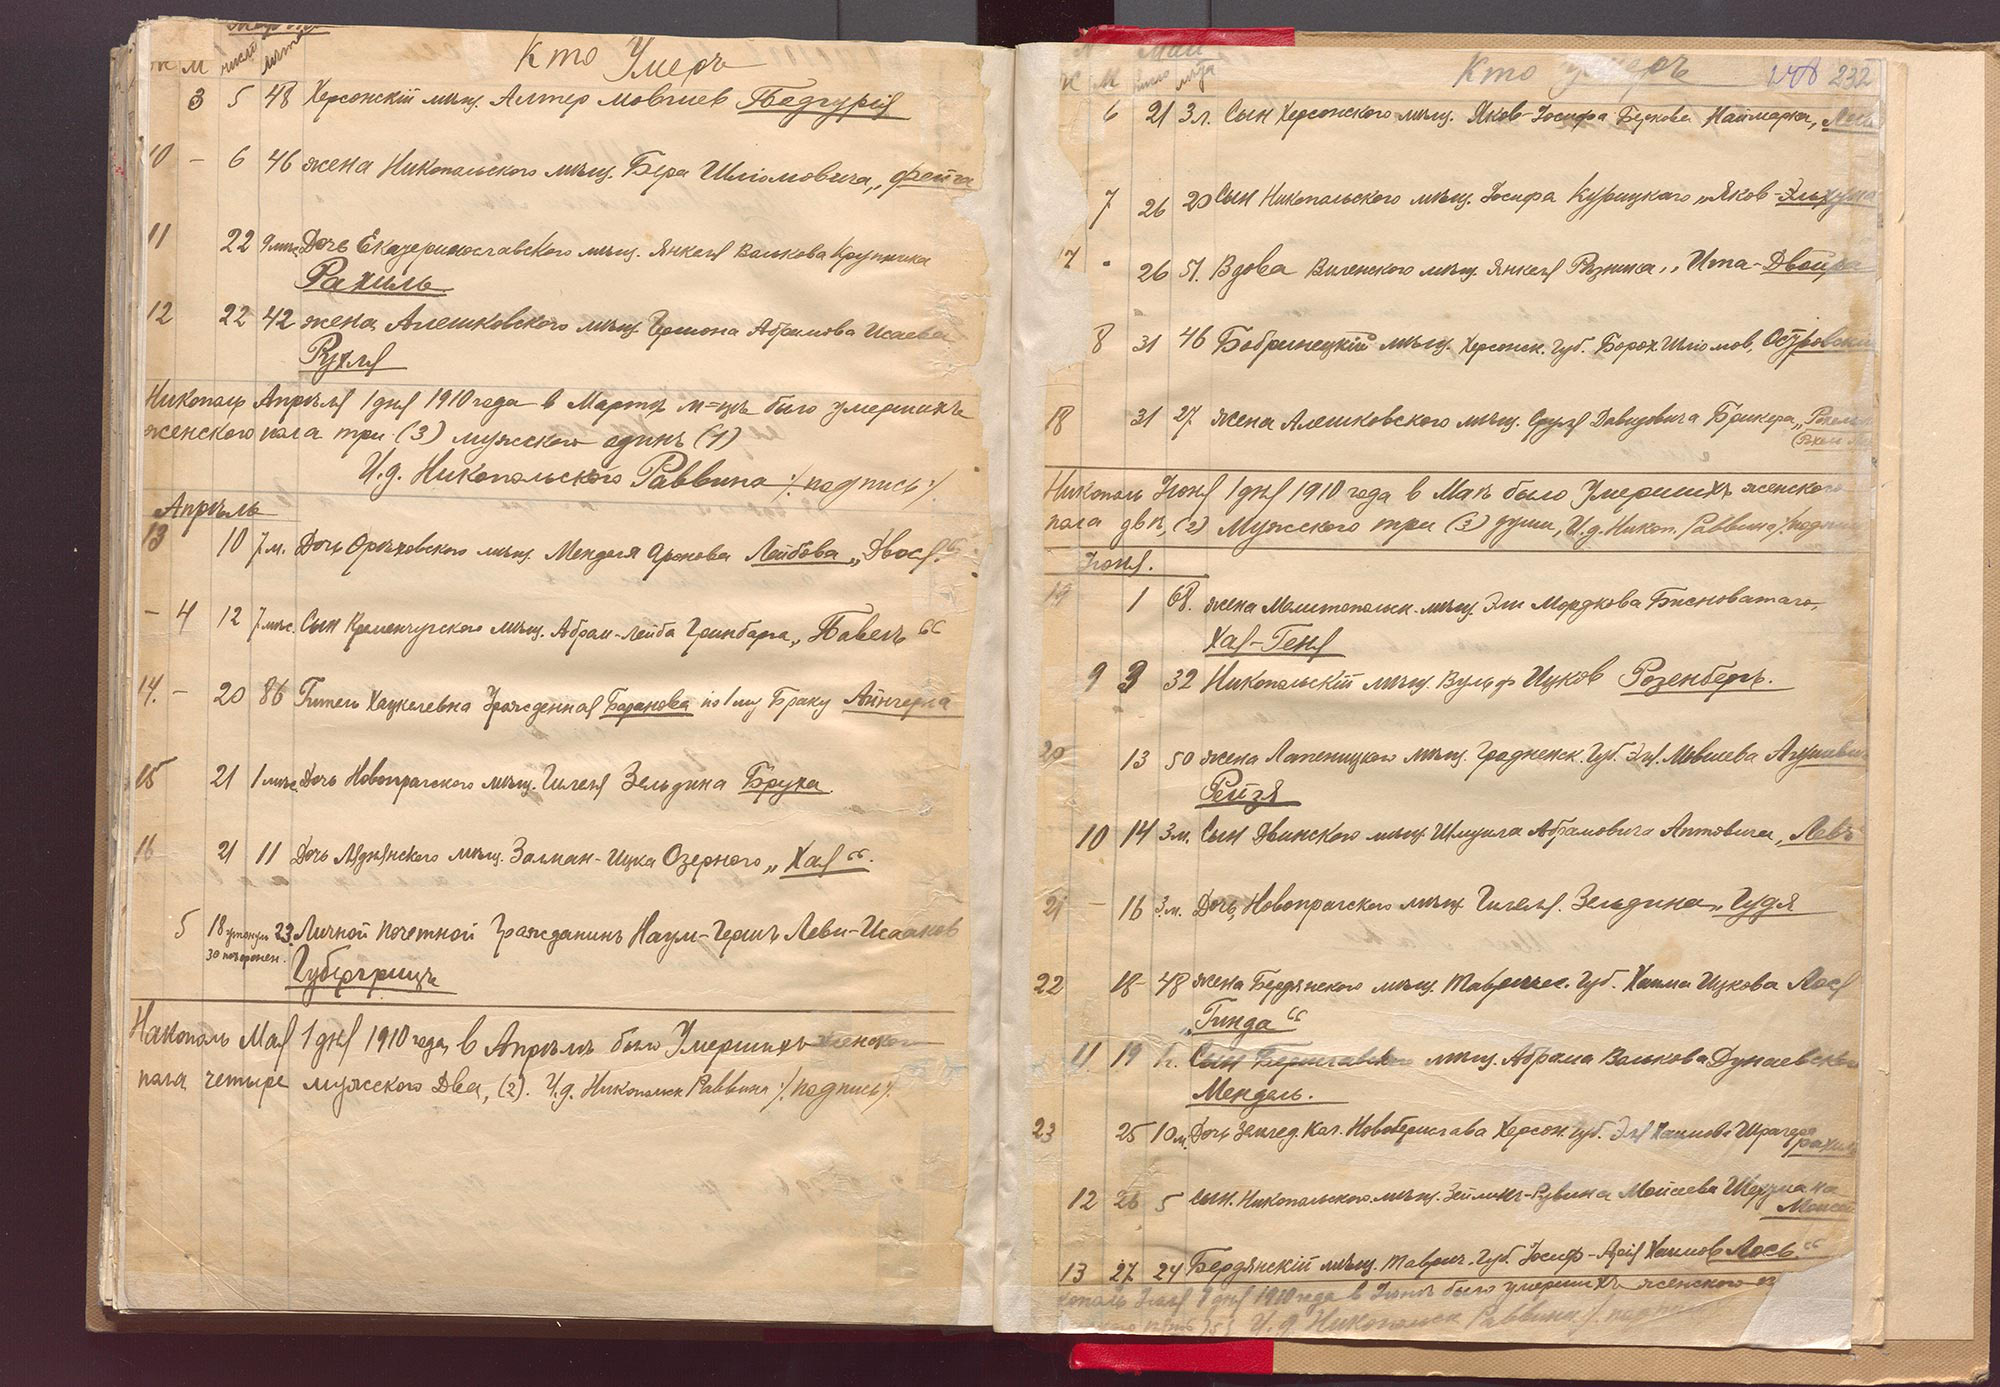 Ж М число лѣта
Кто Умеръ
3 5 48 Херсонскій мѣщ. Алтер Мовшіев Подгурій
10 – 6 46 жена Никопольского мѣщ. Бера Шліомовича „Фейга
11 22 9 мѣс. Дочь Екатеринославского мѣщ. Янкеля Волькова Крупника
Рахиль
12 22 42 жена Алешковского мѣщ. Гершона Абрамова Исаева
Рухля
Никополь Апрѣля 1 дня 1910 года в Мартѣ м=цѣ было умершихъ
женского пола три (3) мужского одинъ (1)
И.д. Никопольского Раввина /: подпись :/
Апрѣль
13 10 7 м. Дочь Орѣховского мѣщ. Менделя Лейбова „Двося“
– 4 12 7 мѣс. Сын Кременчугского мѣщ. Абрам-Лейба Гринберга „Павелъ“
14. – 20 86 Гитель Хацкелевна Урожденная Баранова по 1му Браку Айнгерна
15 21 1 мѣс. Дочь Новопрагского мѣщ. Гилеля Зельдина Бруха.
16 21 11 Дочь мѣщ. Залман-Ицка Озерного „Хая“.
5 18 утонул 23. Личной почетной Гражданинъ Наум-Гершъ Леви-Исааков
30 похоронен. Губергрицъ
Никополь Мая 1 дня 1910 года, в Апрѣлѣ было Умершихъ женского
пола четыре мужского два, (2). И.д. Никопольск Раввина /: подпись :/
Май
Ж М число лѣта
Кто умеръ 232
6 21 3 л. Сын Херсонского мѣщ. Яков-Іосифа Беркова Наймарка,
7 26 20 Сын Никопольского мѣщ. Іосифа Курицкаго „Яков-Эльхуна
17 26 51. Вдова Виленского мѣщ. Янкеля Рѣзника „Ита-Двойра
8 31 46 Бобринецкій мѣщ. Херсонск. Губ. Борох Шліомов, Островскій
18 31 27 жена Алешковского мѣщ. Сруля Давидовича Брикера,
Никополь Іюня 1 дня 1910 года в Маѣ было Умершихъ женского
пола двѣ, (2) Мужского три (3) души, И.д. Никоп. Раввина /: подпись
Іюня.
19 1 68. жена Мелитопольск. мѣщ. Эли Мордкова Бисноватаго,
Хая-Геня
9 3 32 Никопольскій мѣщ. Вульф Ицков Розенбергъ.
20 13 50 жена Лапеницкого мѣщ. Гродненск. Губ. Эля Мовшева
Рейзя
10 14 3 м. Сын Двинского мѣщ. Шмуила Абрамовича Аптовича, „Левъ
21 – 16 3 м. Дочь, Новопрагского мѣщ. Гилеля. Зельдина „Гудя
22 18 – 48 жена Бердянского мѣщ. Тавричес. Губ. Хаима Ицкова Лося
„Гинда“
11. 19 Сын Бериславского мѣщ. Абрама Волькова Дунаевского
Мендель.
23 25 10 м. Дочь Землед. Кол. Новоберислава Херсон. Губ. Эля Хаимова Шрагера
Рахиль
12 26 5 Сын. Никопольского мѣщ. Зейликъ-Рувина Мойсеева Шехтмана
Моисей
13 27 24 Бердянскій мѣщ. Таврич. Губ. Іосиф-Арія Хаимов Лось“
Іюля 1 дня 1910 года в Іюнѣ было умершихъ женского
пять (5) И.д. Никопольск Раввина /: подпи